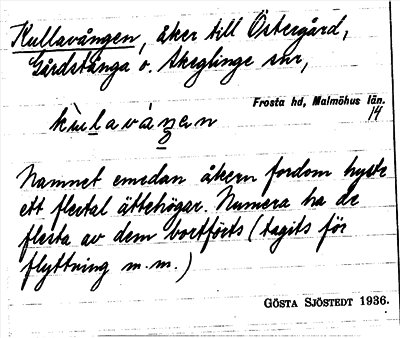 Kullavången, åker till Östergård,
Gårdstånga o. Skeglinge snr,
Frosta hd, Malmöhus län.
14
kùlavàŋən
Namnet emedan åkern fordom hyste
ett flertal ättehögar. Numera ha de
flesta av dem bortförts (tagits för
flyttning m.m.)
GÖSTA SJÖSTEDT 1936.